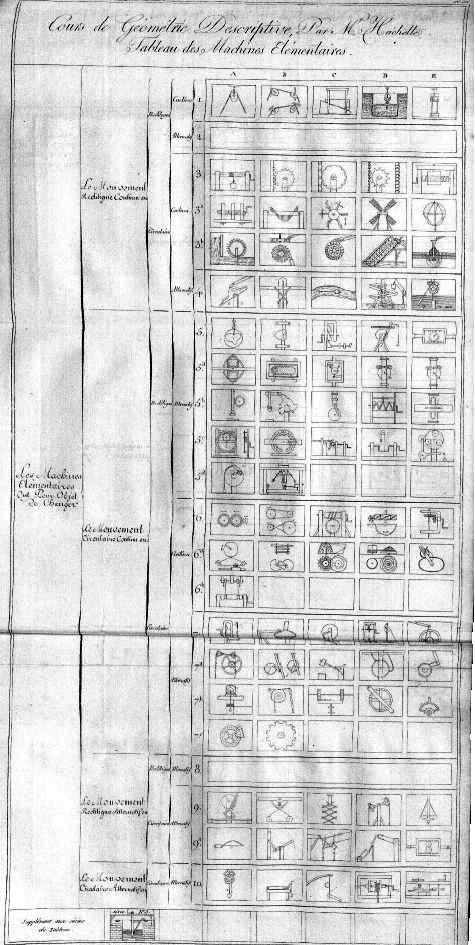 Cours de Géométrie Descriptive, Par Mr. Hachette
Tableau des Machines Elementaires.
A B C D E
Rectiligne
Continu
1
Alternatif
2
Le Mouvement
Rectiligne Continu en
Circulaire
Continu
3
3a
3b
Alternatif
4
Les Machines
Elementaires
Ont Pour Objet
de Changer
Le Mouvement
Circulaire Continu en
Rectiligne Alternatif
5
5a
5b
5c
5d
Circulaire
Continu
6
6a
6b
Alternatif
7
7a
7b
7c
Le Mouvement
Rectiligne Alternatif en
Rectiligne Alternatif
8
Circulaire Alternatif
9
9a
Le Mouvement
Circulaire Alternatif en
Circulaire Alternatif
10
Supplément aux séries
du Tableau